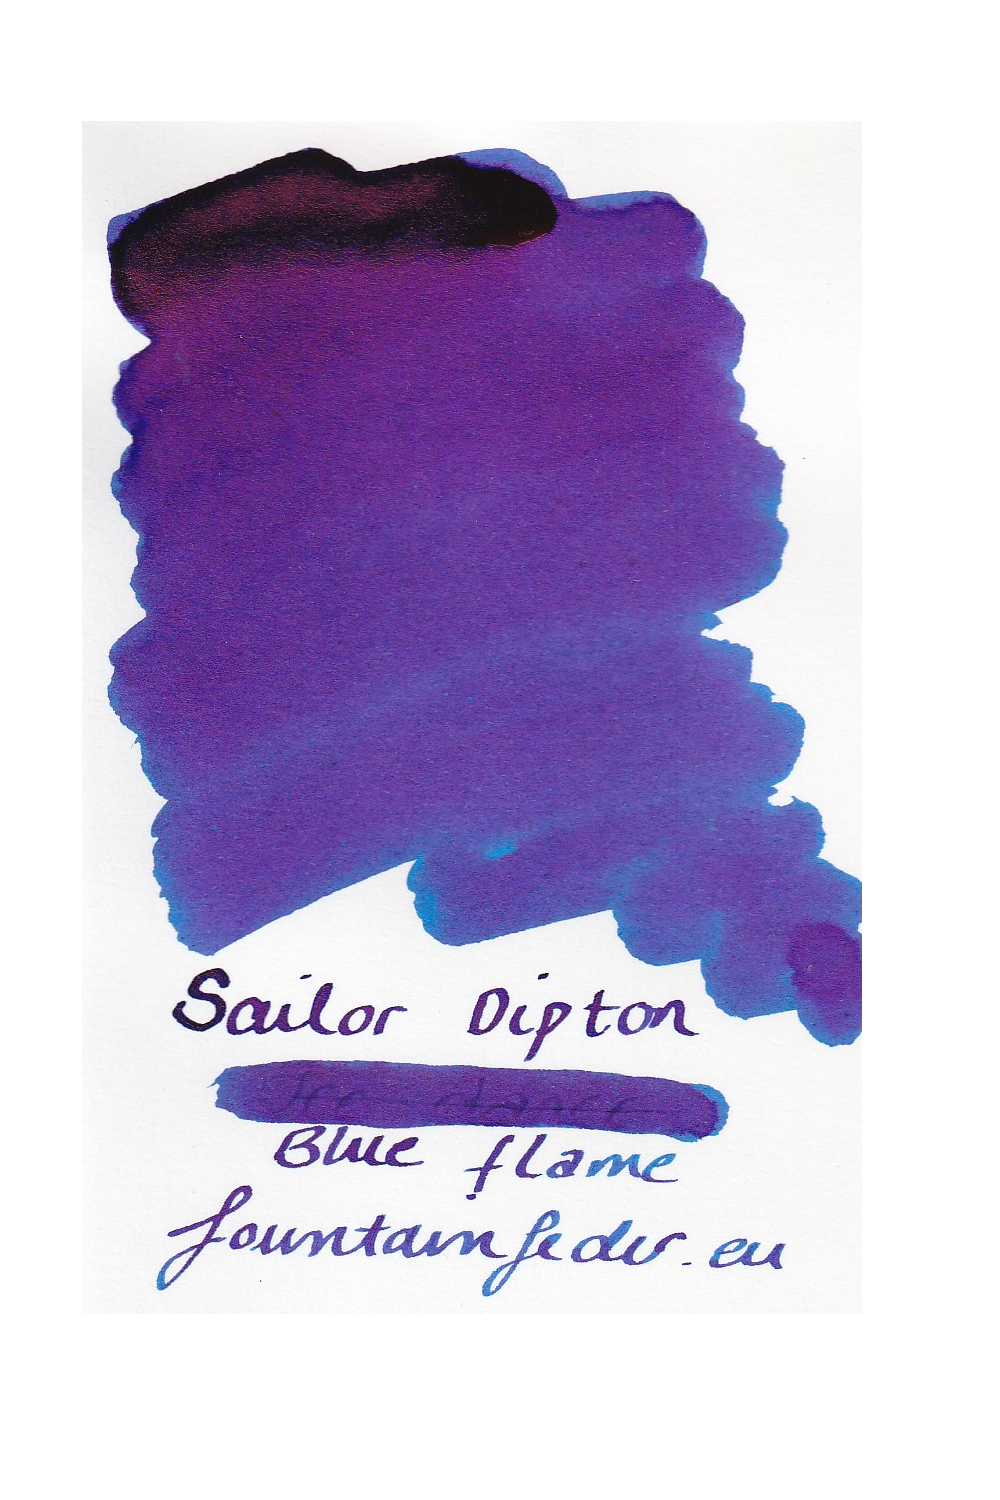 Sailor Dipton
Blue flame
fountainfeder.eu